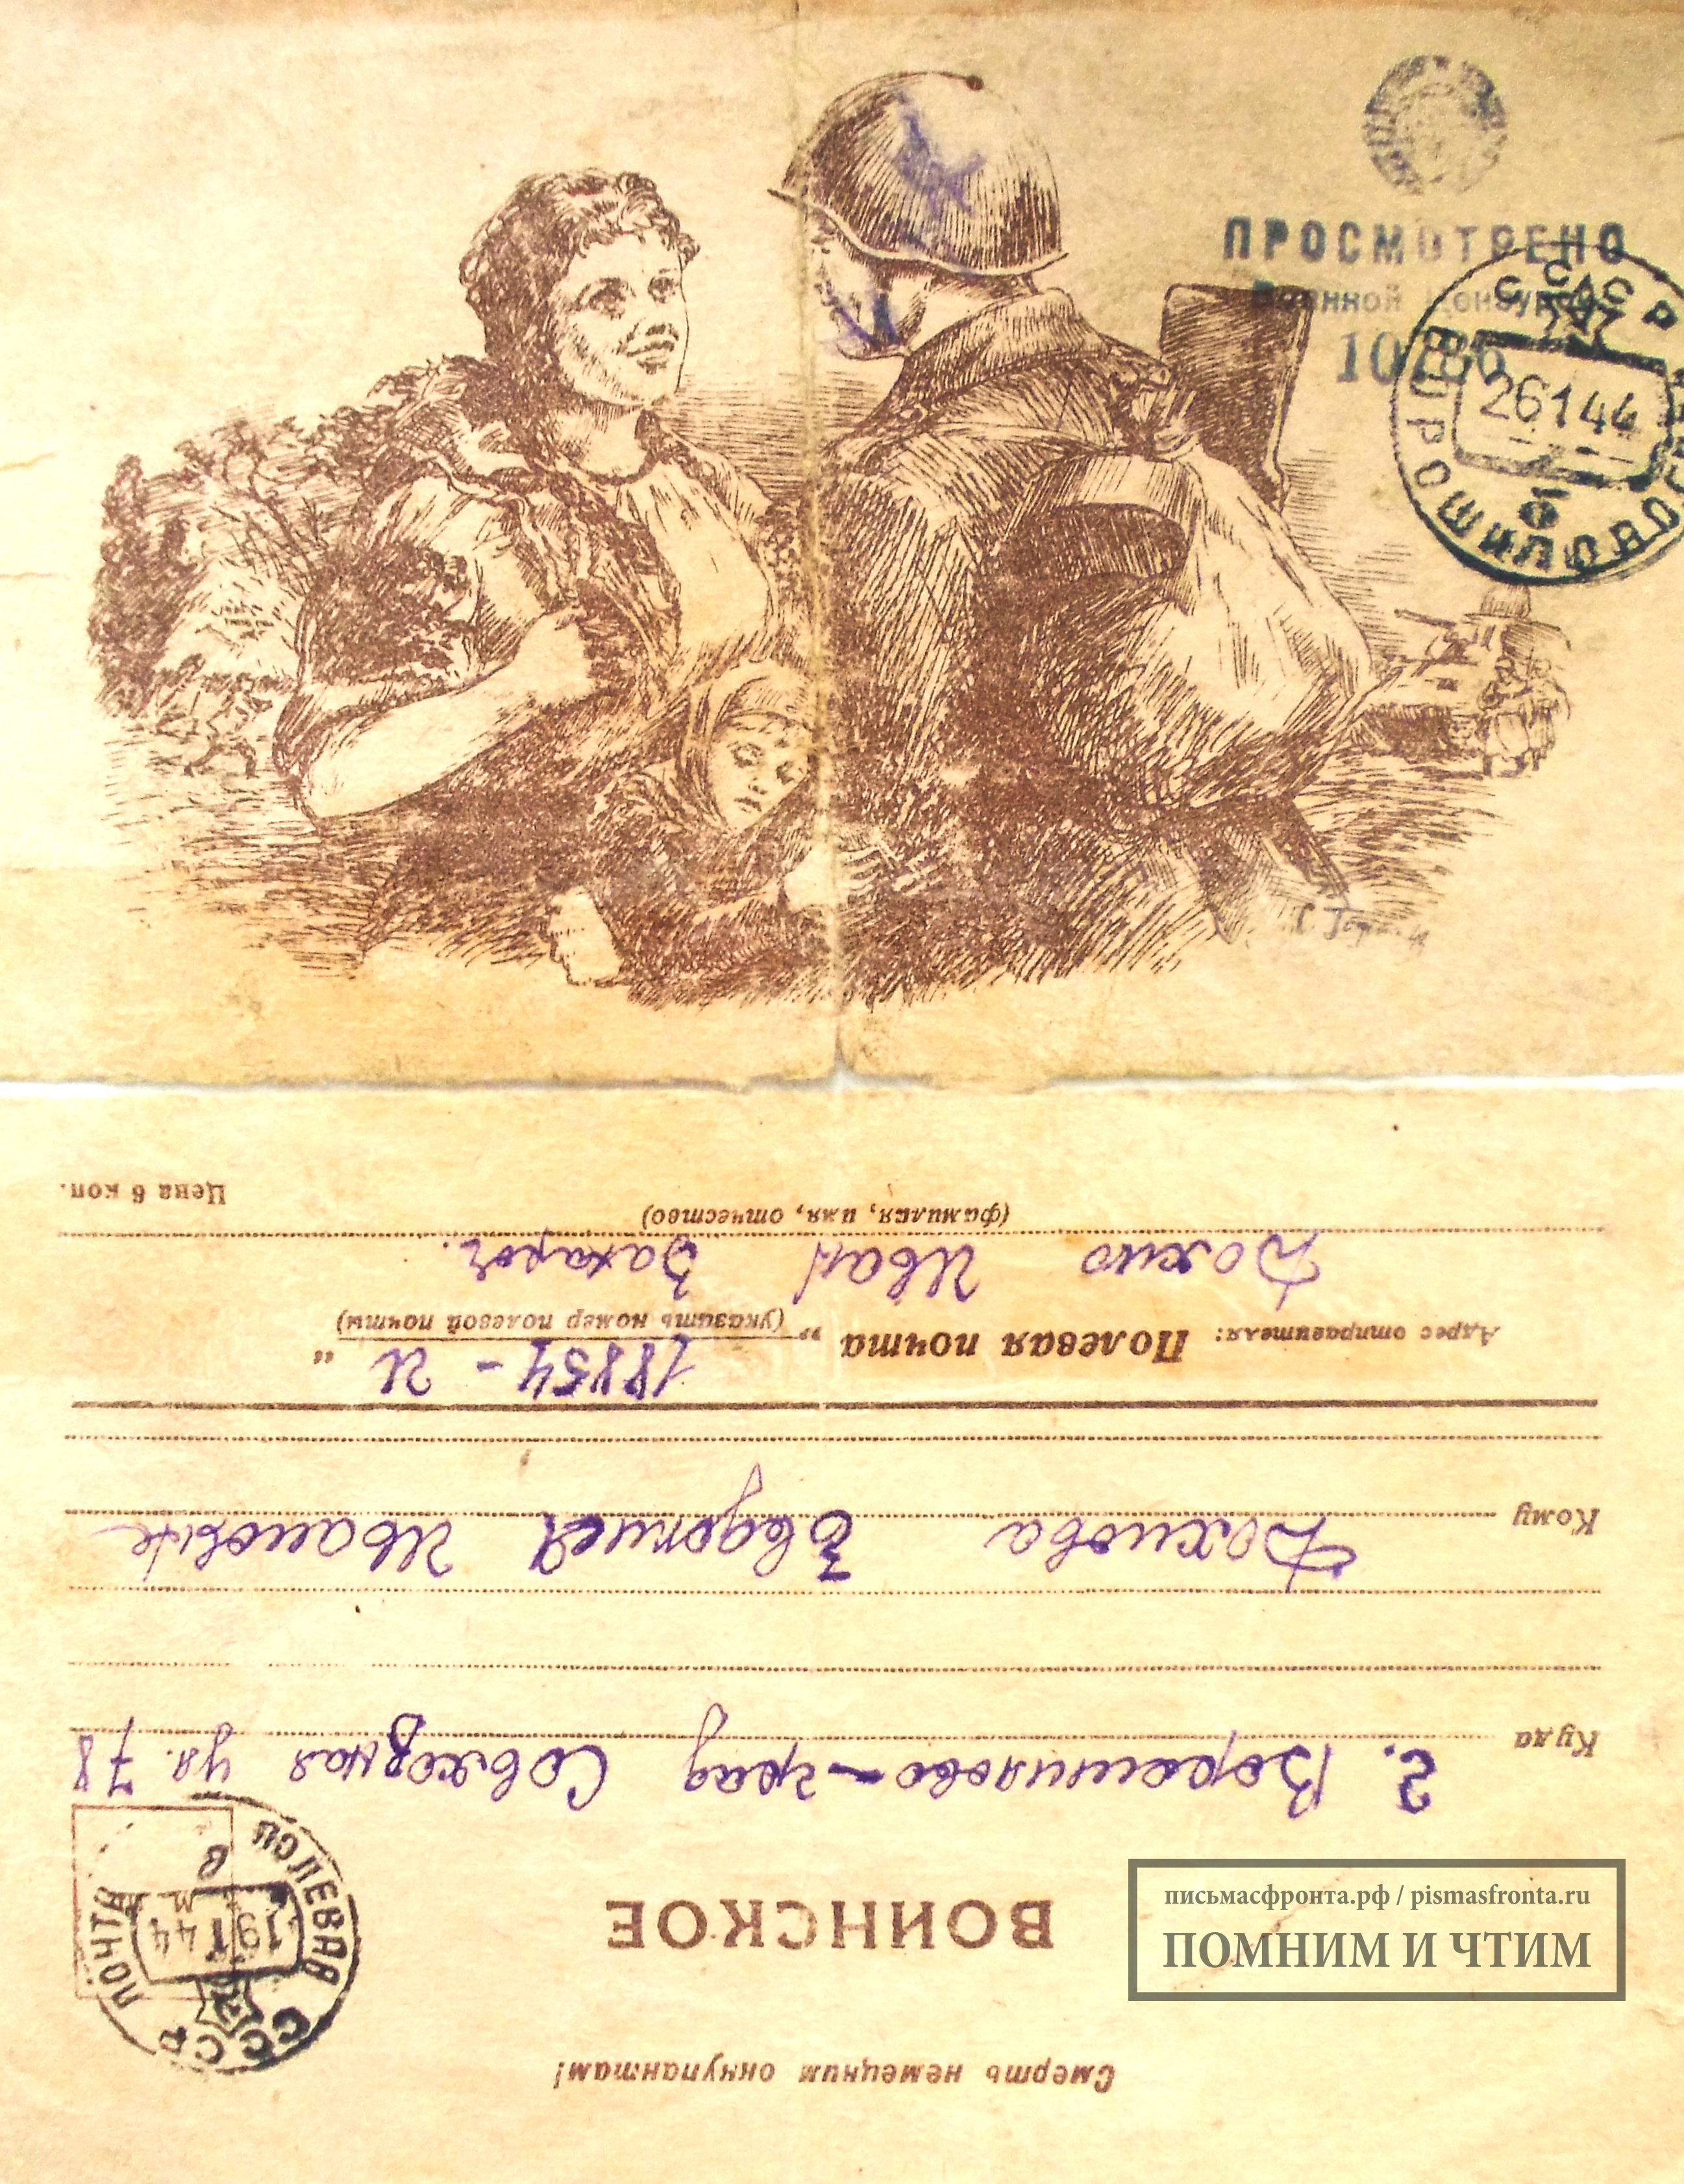 ПРОСМОТРЕНО
Военной Цензурой
10786
СССР
ВОРОШИЛОВОГРАД
26 1 44
Смерть немецким оккупантам!
ВОИНСКОЕ
СССР
ПОЛЕВАЯ ПОЧТА
19 1 44
В
Куда г. Ворошилово-град Совхозная ул. 78
Кому Дохнова Евдокией Ивановне
Адрес отправителя: Полевая почта „18854 - И“
(указать номер полевой почты)
Дохно Иван Захаров.
(фамилия, имя, отчество)
Цена 6 коп.
письмасфронта.рф / pismasfronta.ru
ПОМНИМ И ЧТИМ